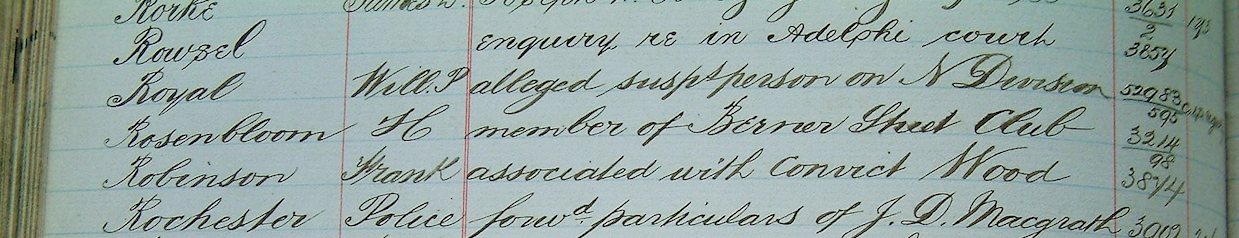 Rorke James W. Joseph
Rowzel enquiry re in Adelphi court 3631/2 3857
Royal Will. P alleged susptperson on N Division 52983/595
Rosenbloom H member of Berner Street Club 3214/98
Robinson Frank associated with Convict Wood 3874
Rochester Police forwd. particulars of J. D. Macgrath